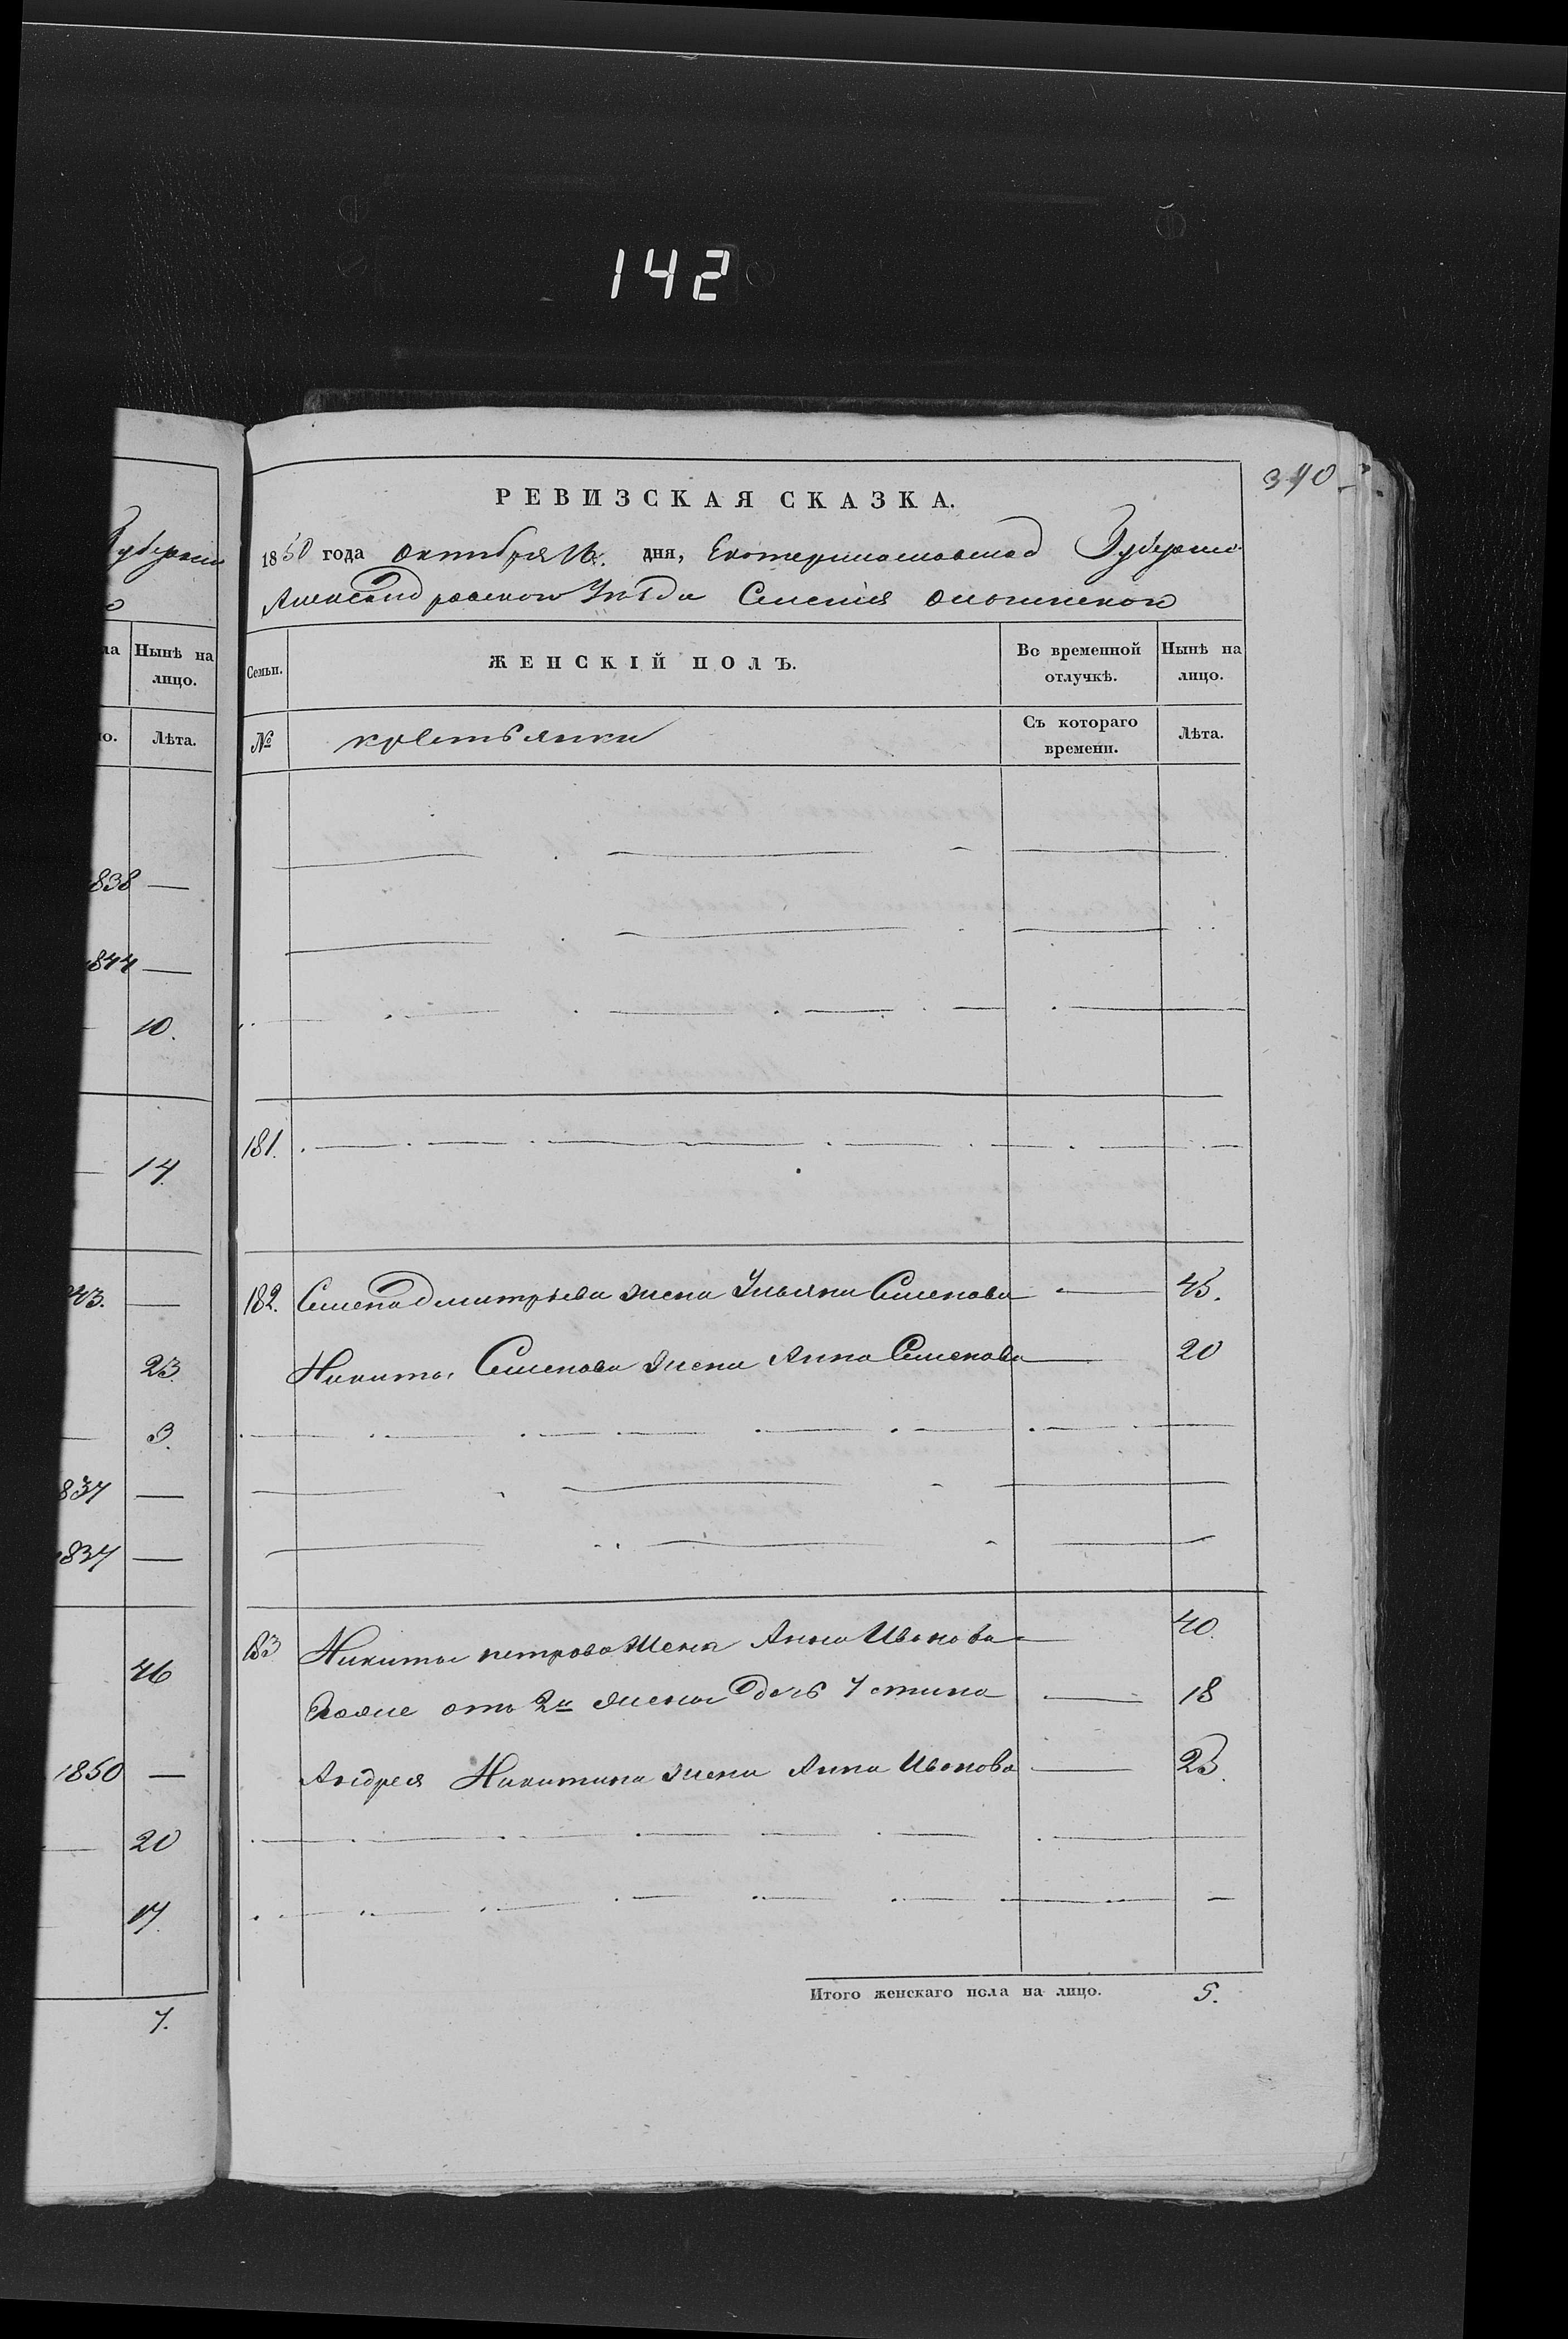 142
340
РЕВИЗСКАЯ СКАЗКА.
1850 года Октября 16. дня, Екатеринославской Губернии
Александровского Уезда Селения
Семьи.
ЖЕНСКІЙ ПОЛЪ.
Во временной отлучкѣ.
Нынѣ на лицо.
№
крестьянки
Съ котораго времени.
Лѣта.
181.
182. Семена Дмитрьева жена Ульяна Семенова — 45.
Никиты Семенова жена Анна Семенова — 20
183 Никиты петрова Жена Анна Иванова — 40.
его же отъ 2й жены дочь Устина — 18
Андрея Никитина жена Анна Иванова — 23.
Итого женскаго пола на лицо. 5.
Губернии
ла
Нынѣ на лицо.
ло.
Лѣта.
838 —
844 —
10.
14.
43. —
23.
3.
837 —
837 —
46
1850 —
20
17.
7.